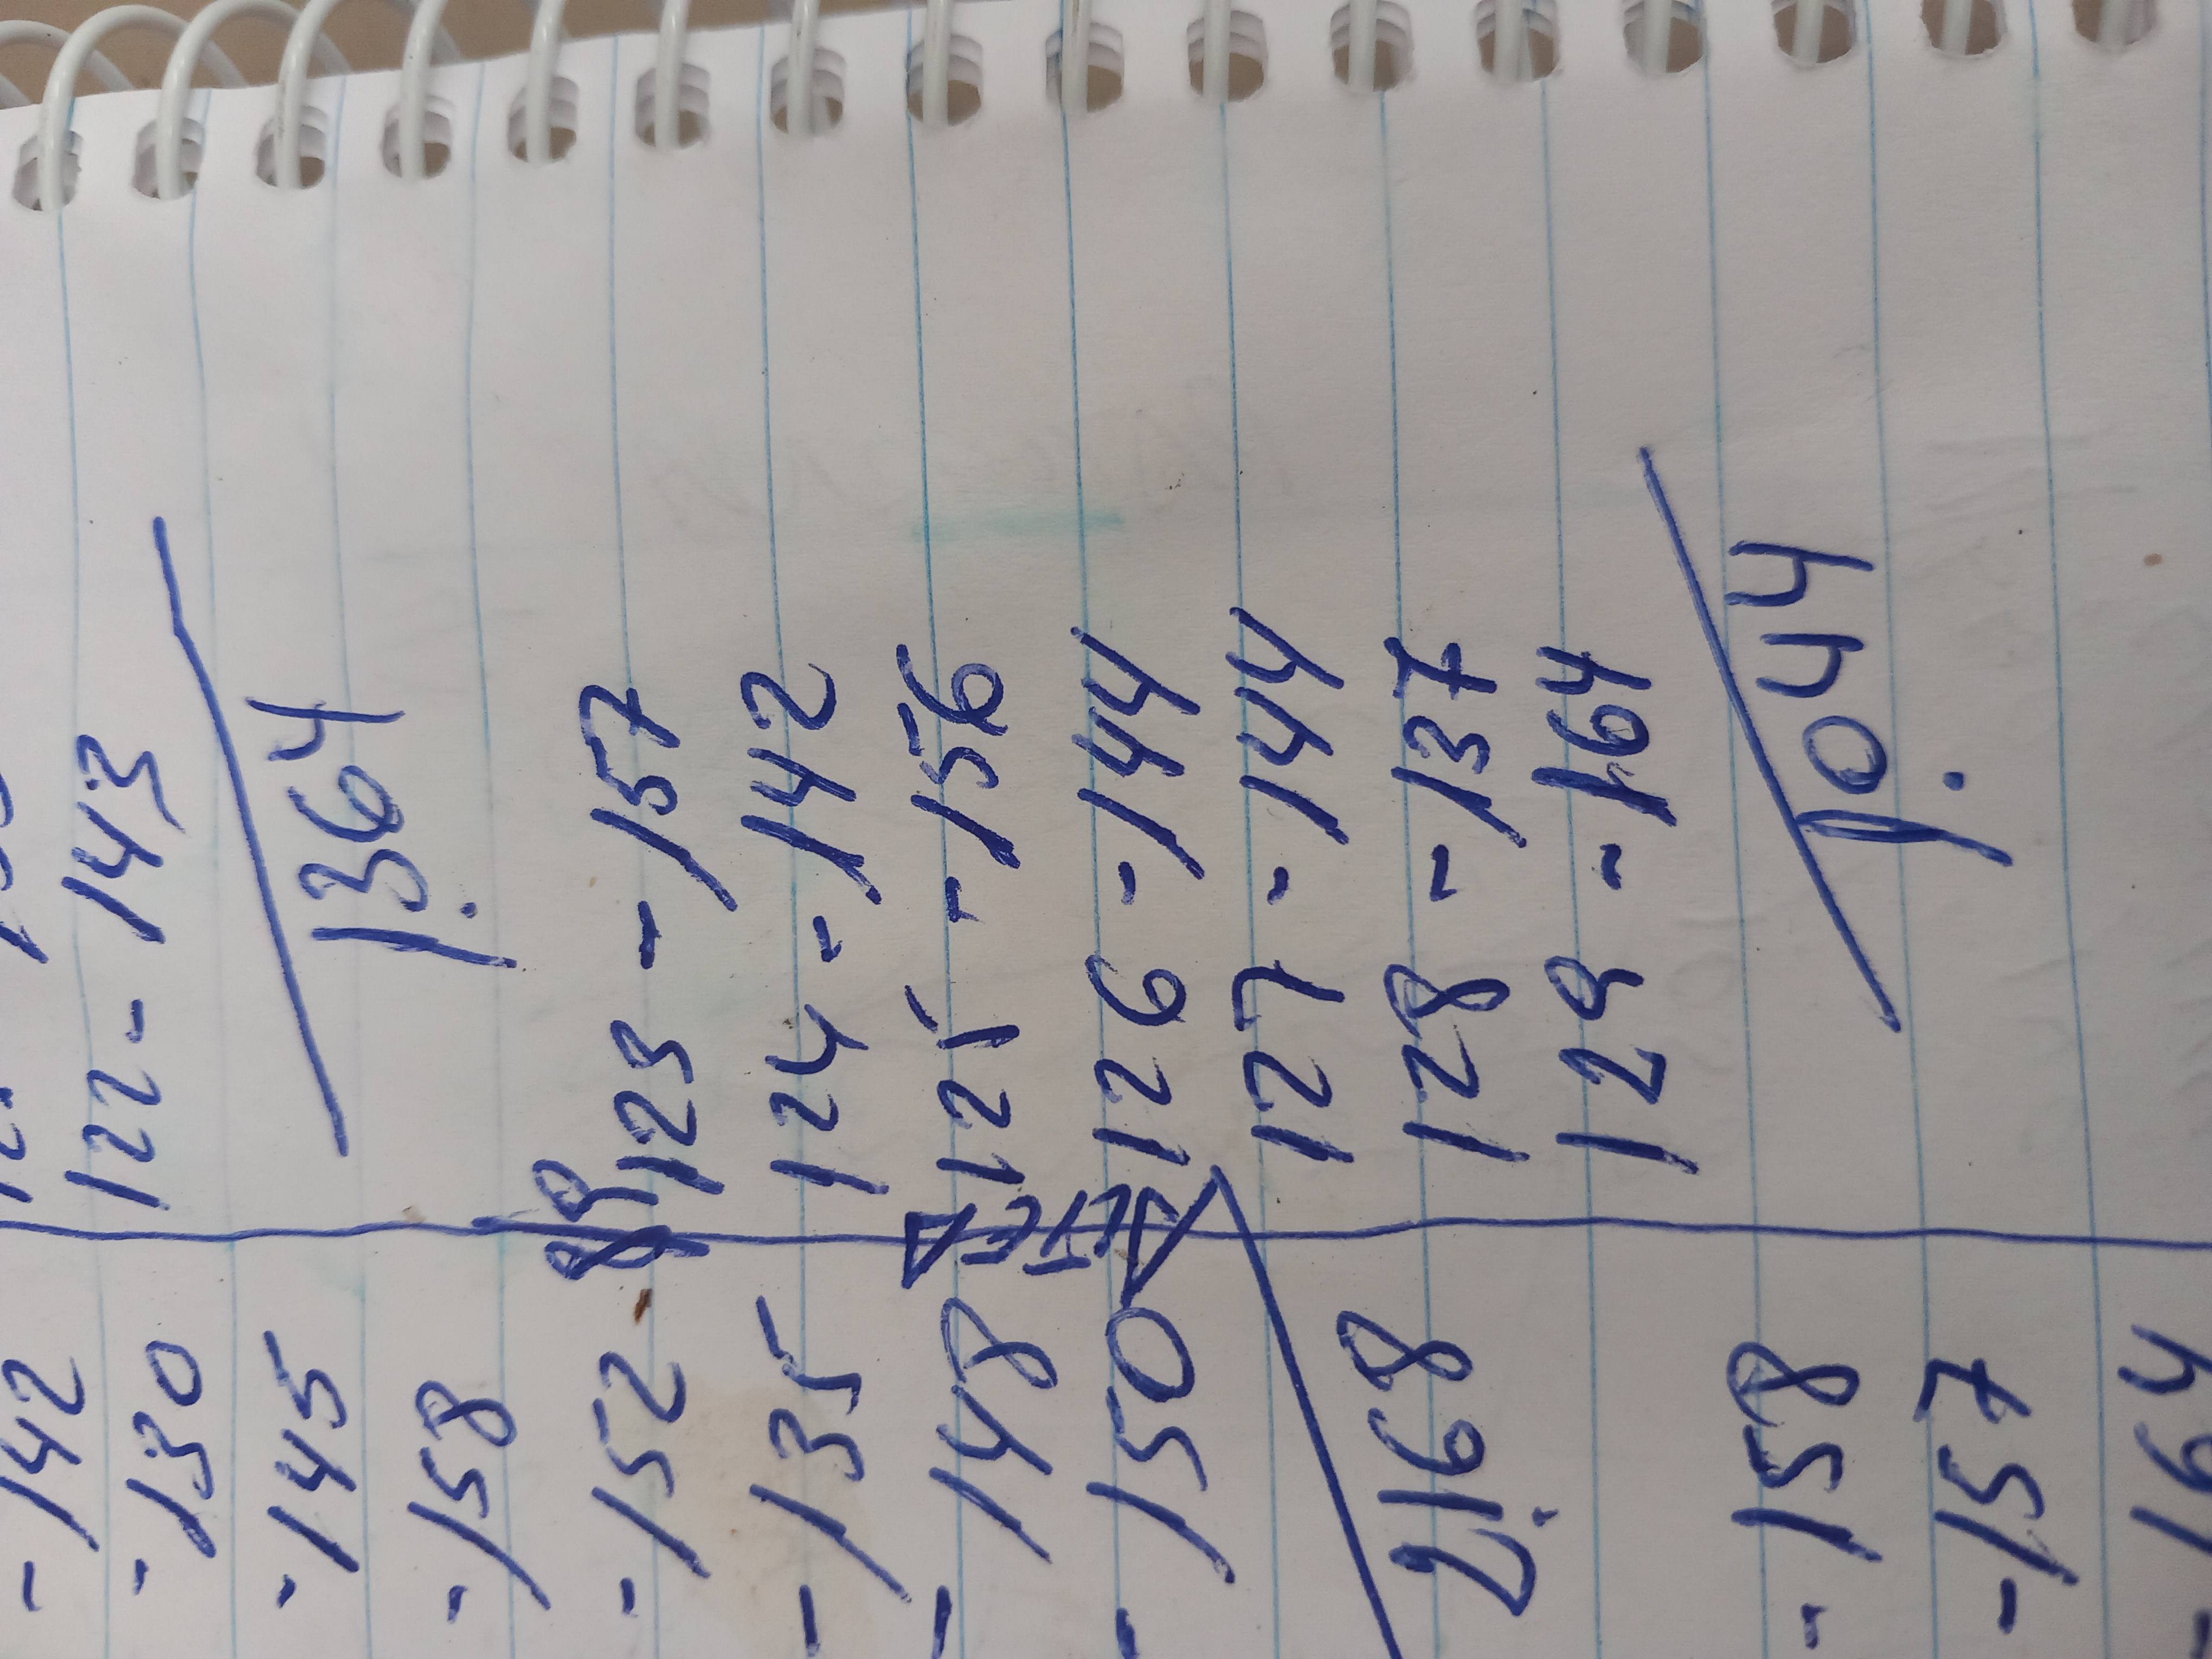 - 142
- 130
- 145
- 158
- 152
- 135
- 148
- 150
2.168
- 158
- 157
- 164
122 - 143
1.364
89
123 - 157
124 - 142
125 - 156
126 - 144
127 - 144
128 - 137
129 - 164
1.044